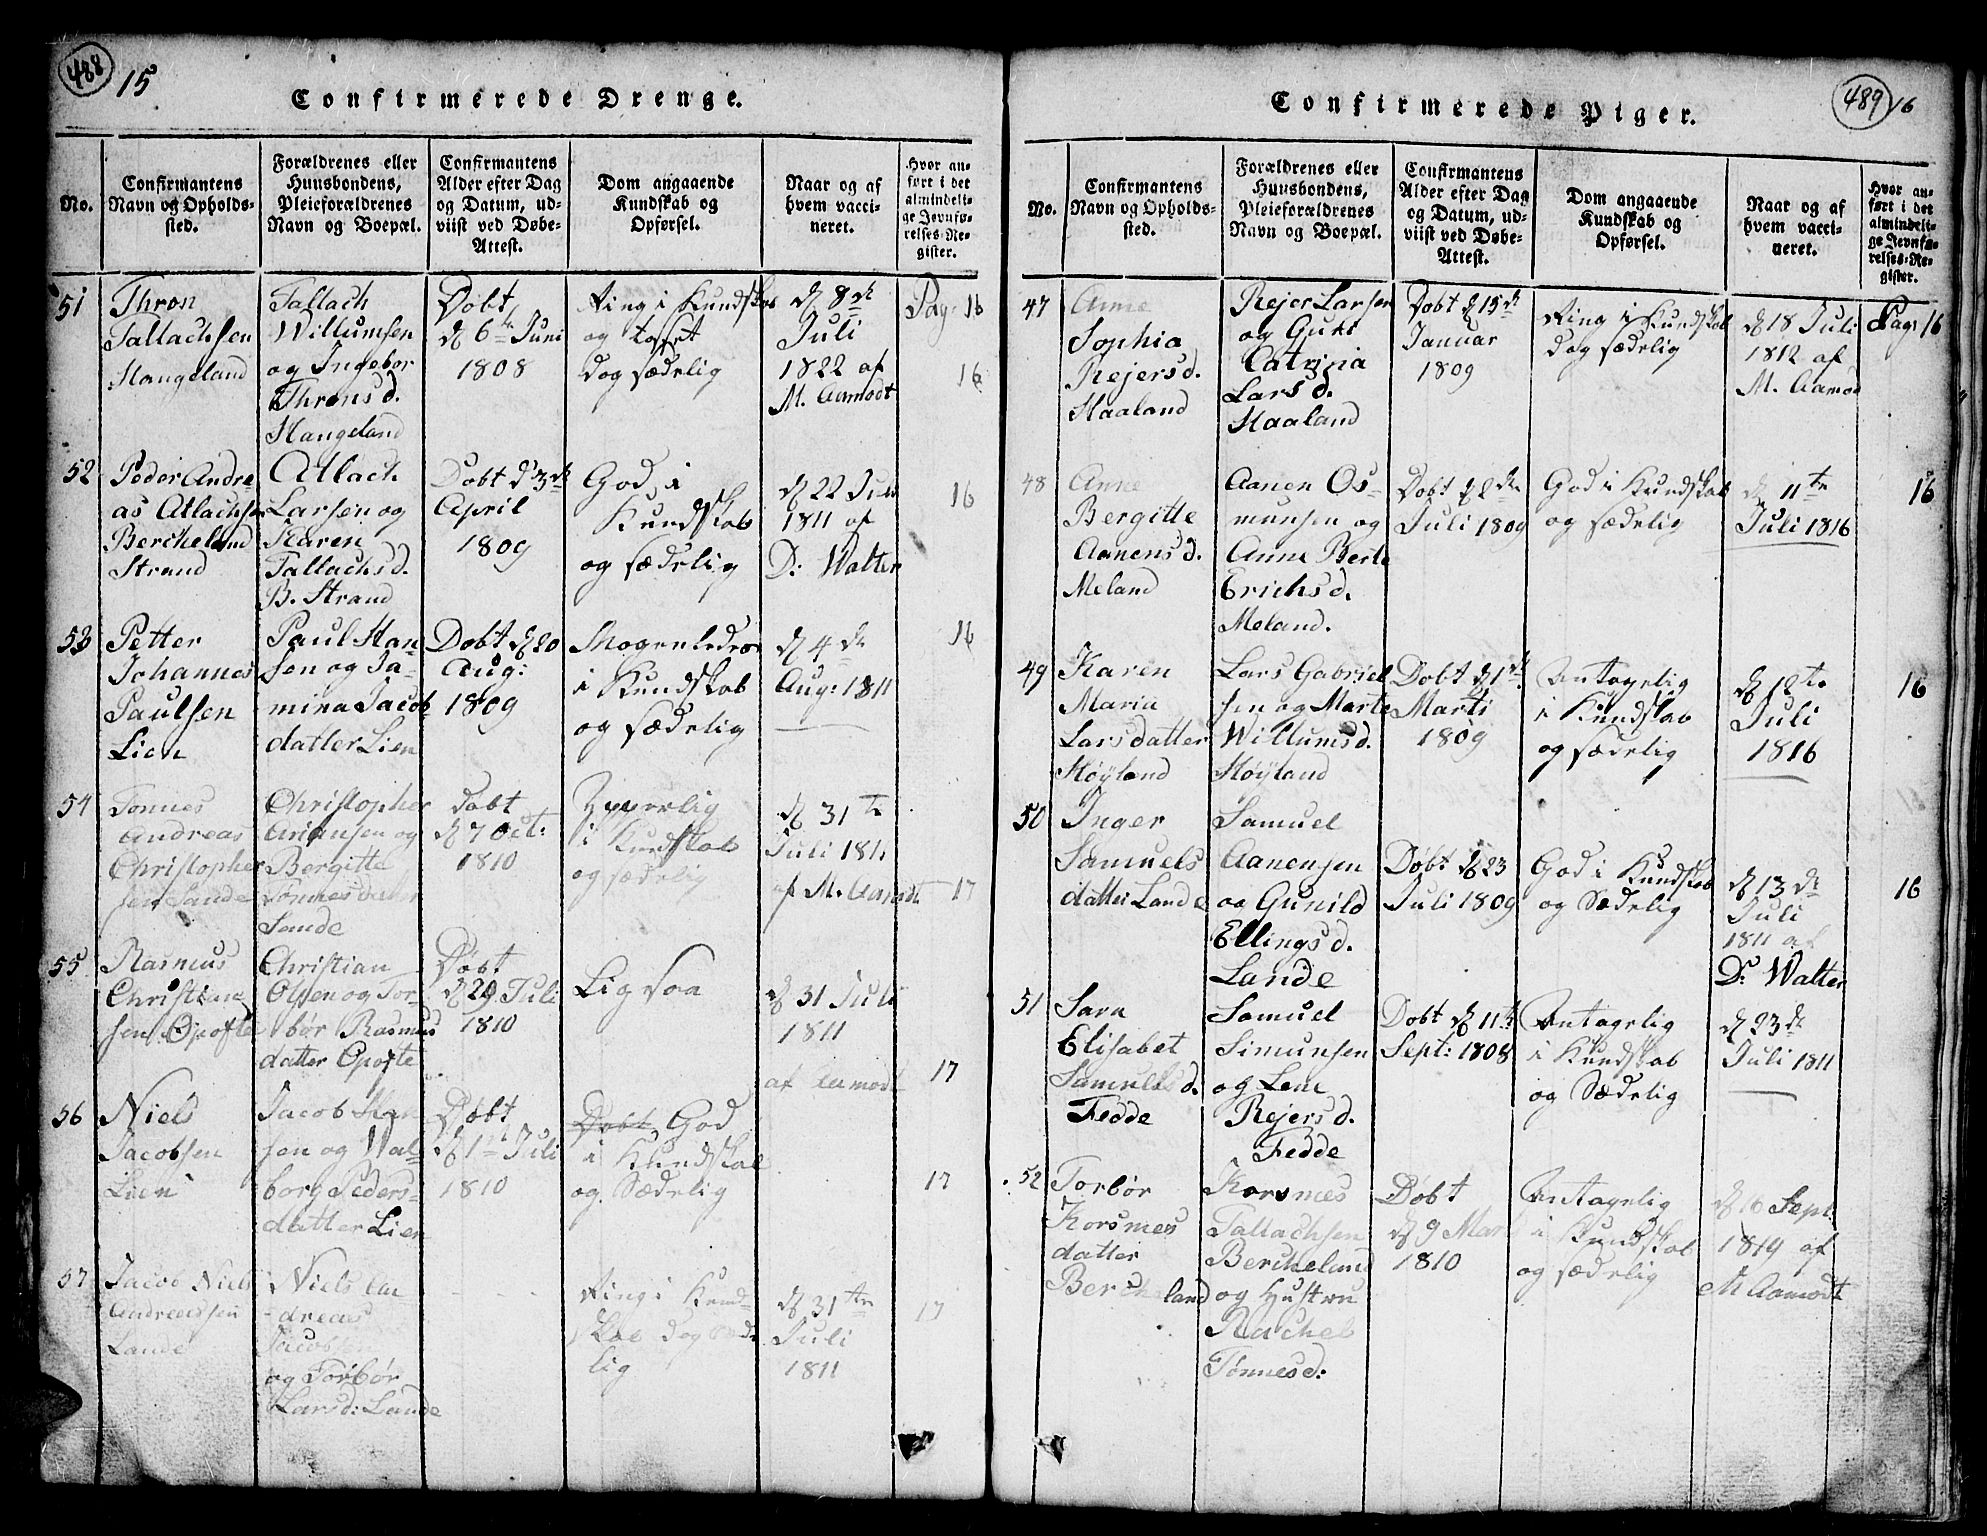 488
15
Confirmerede Drenge.
No.
Confirmantens
Navn og Opholds-
sted.
Forældrenes eller
Huusbondens,
Pleieforældrenes
Navn og Boepæl.
Confirmantens
Alder efter Dag
og Datum, ud-
viist ved Døbe-
Attest.
Dom angaaende
Kundskab og
Opførsel.
Naar og af
hvem vacci-
neret.
Hvor an-
ført i det
almindeli-
ge Jevnfø-
relses-Re-
gister.
51
Thron
Tallachsen
Hangeland
Tallach
Willumsen
og Ingebor
Throns d.
Hangeland
Døbt
d 6te Juni
1808
Ring i Kundskab
og toset
dog sædelig
d 8de
Juli
1822 af
M. Aamodt
Pag: 16
16
52
Peder Andre
as Atlachsen
Bercheland
Strand
Atlach
Larsen og
Karen
Tallachs d.
B. Strand
Døbt d 3de
April
1809
God i
Kundskab
og sædelig
d 22 Juli
1811 af
D: Walter
16
53
Petter
Johannes
Paulsen
Lien
Paul Han
sen og Ja-
mina Jacob
datter Lien
Døbt d 20
Aug:
1809
Mogenledes
i Kundskab
og sædelig
d 4de
Aug: 1811
16
54
Tønnes
Andreas
Christopher
sen Sande
Christopher
Ariansen og
Bergitte
Tønnesdatter
Sande
Døbt
d 7 Oct:
1810
Ypperlig
i Kundskab
og sædelig
d 31te
Juli 1811
af M. Aamodt
17
55
Rasmus
Christian
sen Opofte
Christian
Olsen og Tor-
bør Rasmus
datter Opofte
Døbt
d 29 Juli
1810
Ligsaa
d 31 Juli
1811
af Aamodt
17
56
Niels
Jacobsen
Lien
Jacob Han
sen og Wal-
borg Peders-
datter Lien
Døbt
d 1te Juli
1810
Døbt God
i Kundskab
og Sædelig
17
57
Jacob Niels
Andreassen
Lande
Niels An
dreas
Jacobsen
og Torbør
Lars d: Lande
Ring i Kund-
skab dog sæde
lig
d 31te
Juli
1811
17
489
16
Confirmerede Piger.
No.
Confirmantens
Navn og Opholds-
sted.
Forældrenes eller
Huusbondens,
Pleieforældrenes
Navn og Boepæl.
Confirmantens
Alder efter Dag
og Datum, ud-
viist ved Døbe-
Attest.
Dom angaaende
Kundskab og
Opførsel.
Naar og af
hvem vacci-
neret.
Hvor an-
ført i det
almindeli-
ge Jevnfø-
relses-Re-
gister.
47
Anne
Sophia
Rejers d.
Haaland
Rejer Larsen
og Guri
Catrina
Lars d.
Haaland
Døbt d 15de
Januar
1809
Ring i Kundskab
dog sædelig
d 18 Juli
1812 af
M. Aamod
Pag: 16
48
Anne
Bergitte
Aanens d.
Meland
Aanen Os-
munsen og
Anne Berte
Erichs d.
Meland.
Døbt d 2den
Juli 1809
God i Kundskab
og sædelig
d 11te
Juli 1816
16
49
Karen
Maria
Larsdatter
Høyland
Lars Gabriel
sen og Marte
Willums d.
Høyland
Døbt d 1de
Marti
1809
Antagelig
i Kundskab
og sædelig
d 12te
Juli
1816
16
50
Inger
Samuels
datter Lande
Samuel
Aanensen
og Gunild
Ellings d.
Lande
Døbt d 23
Juli 1809
God i Kundskab
og Sædelig
d 13de
Juli
1811 af
Dr Walter
16
51
Sara
Elisabet
Samuels d.
Fedde
Samuel
Simunsen
og Lene
Rejers d.
Fedde
Døbt d 11te
Sept: 1808
Antagelig
i Kundskab
og Sædelig
d 23de
Juli 1811
52
Torbør
Korsmes
datter
Bercheland
Korsmes
Tallachsen
Bercheland
og Hustru
Rachel
Tønnes d:
Døbt
d 9 Mart
1810
Antagelig
i Kundskab
og sædelig
d 16 Sept:
1819 af
M Aamodt